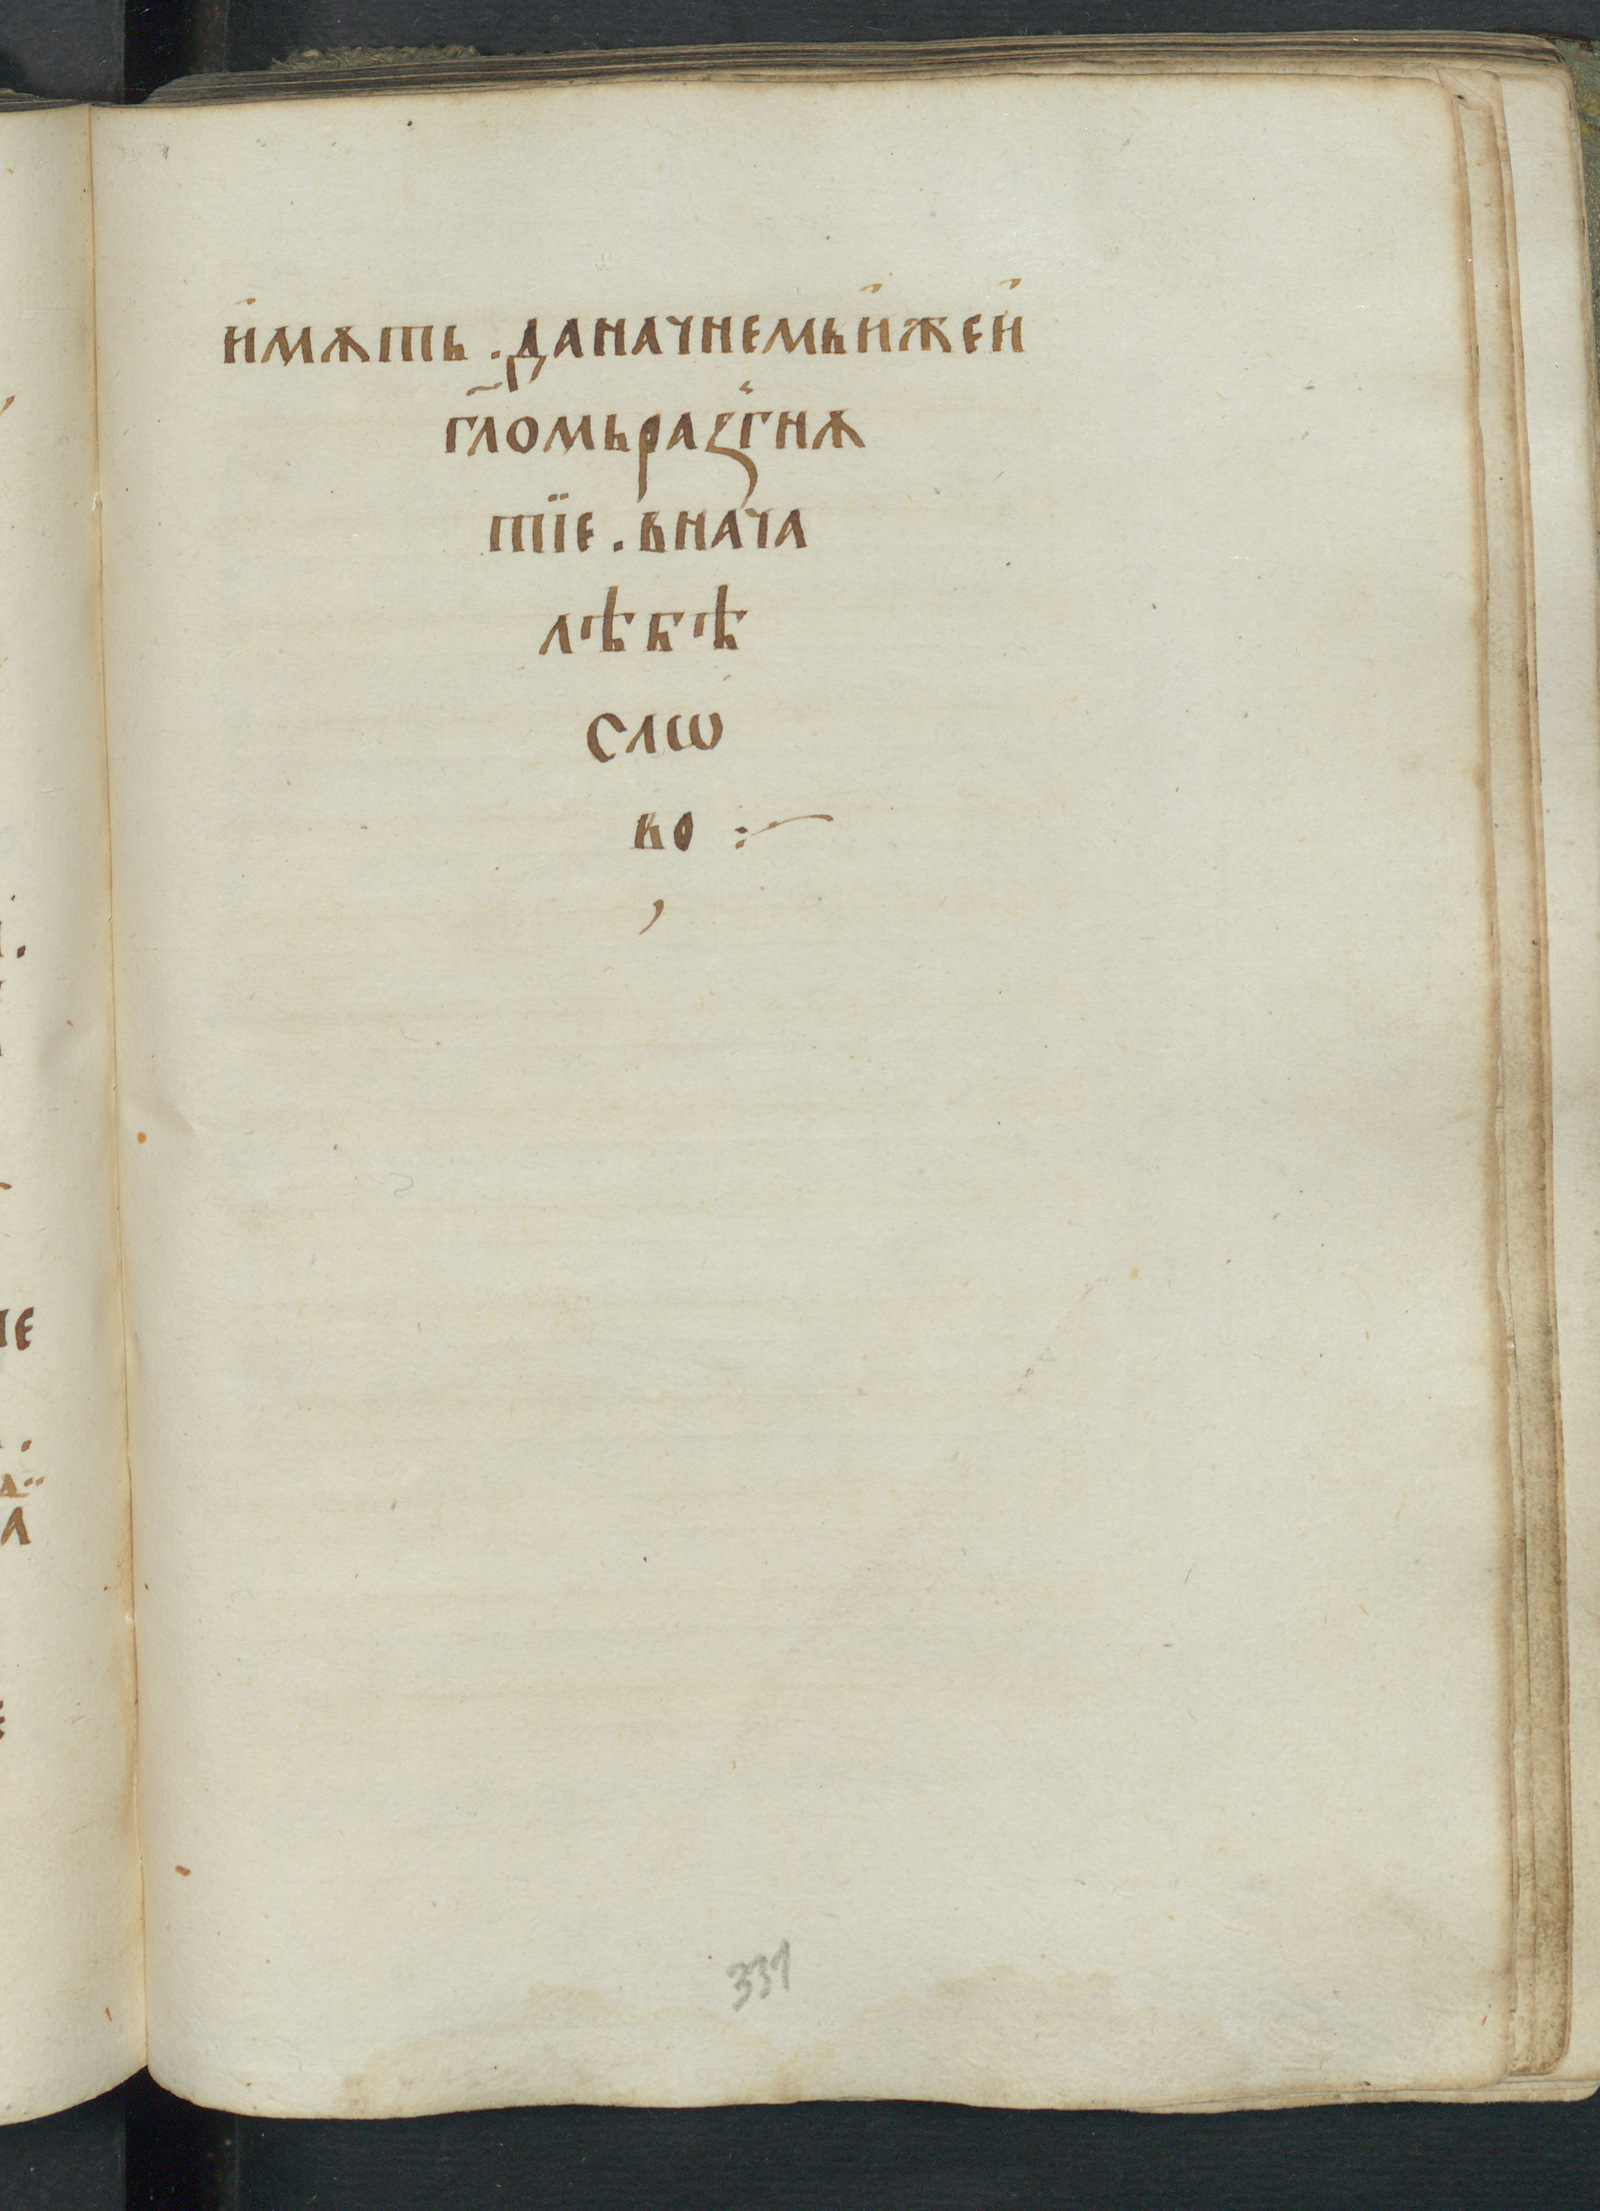 и҆мѫть . даначнемьи҆жеи҆
гл҃омьраꙁгнѫ
тїе . внача
лѣбѣ
слѡ
во :~
,
331